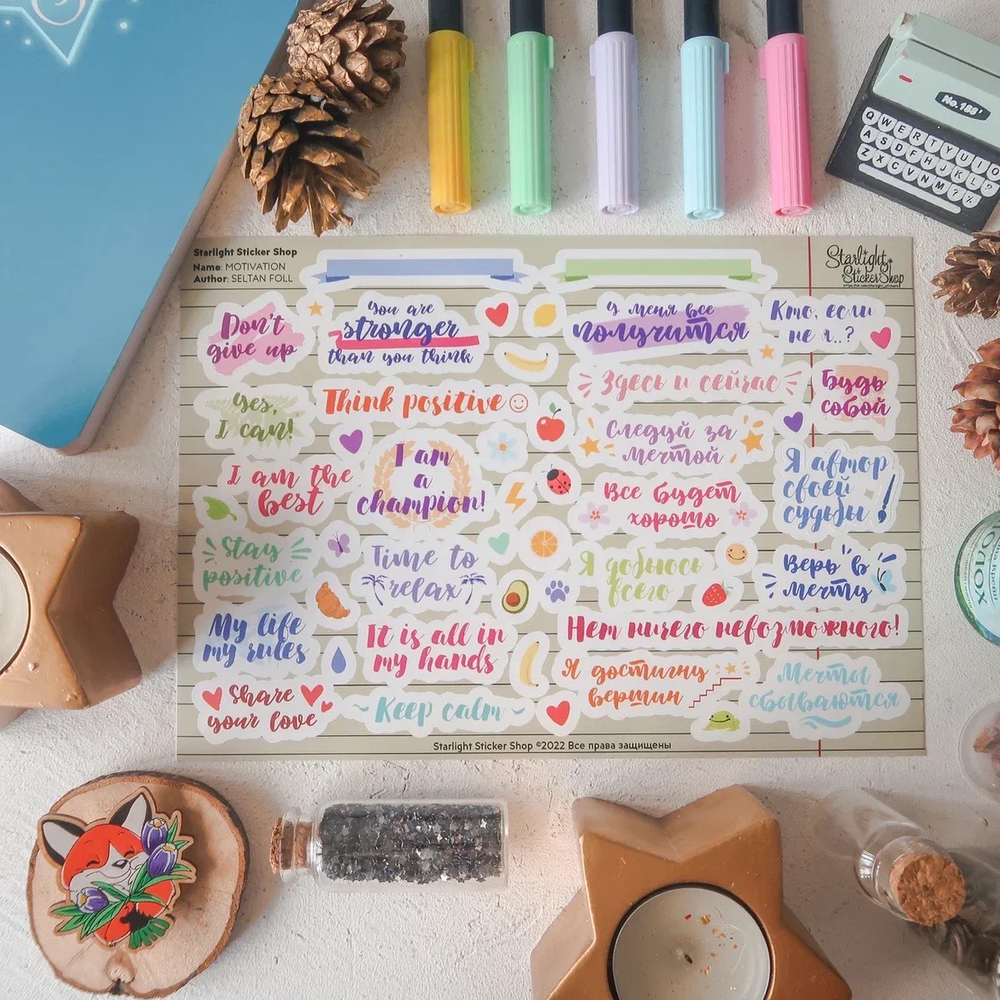 Starlight Sticker Shop
Name: MOTIVATION
Author: SELTAN FOLL
Starlight
StickerShop
No.188'
QWERTYUIO
ASDFHJKL
ZXCVNM?
Don't
give up
You are
stronger
than you think
У меня все
получится
Кто, если
не я..?
Yes,
I can!
Think positive
Здесь и сейчас
Будь
собой
I am the
best
I am
a
champion!
Следуй за
мечтой
Все будет
хорошо
Я автор
своей
судьбы
Stay
positive
Time to
relax
Я добьюсь
всего
Верь в
мечту
My life
my rules
It is all in
my hands
Нет ничего невозможного!
Share
your love
Keep calm
Я достигну
вершин
Мечты
сбываются
Starlight Sticker Shop ©2022 Все права защищены